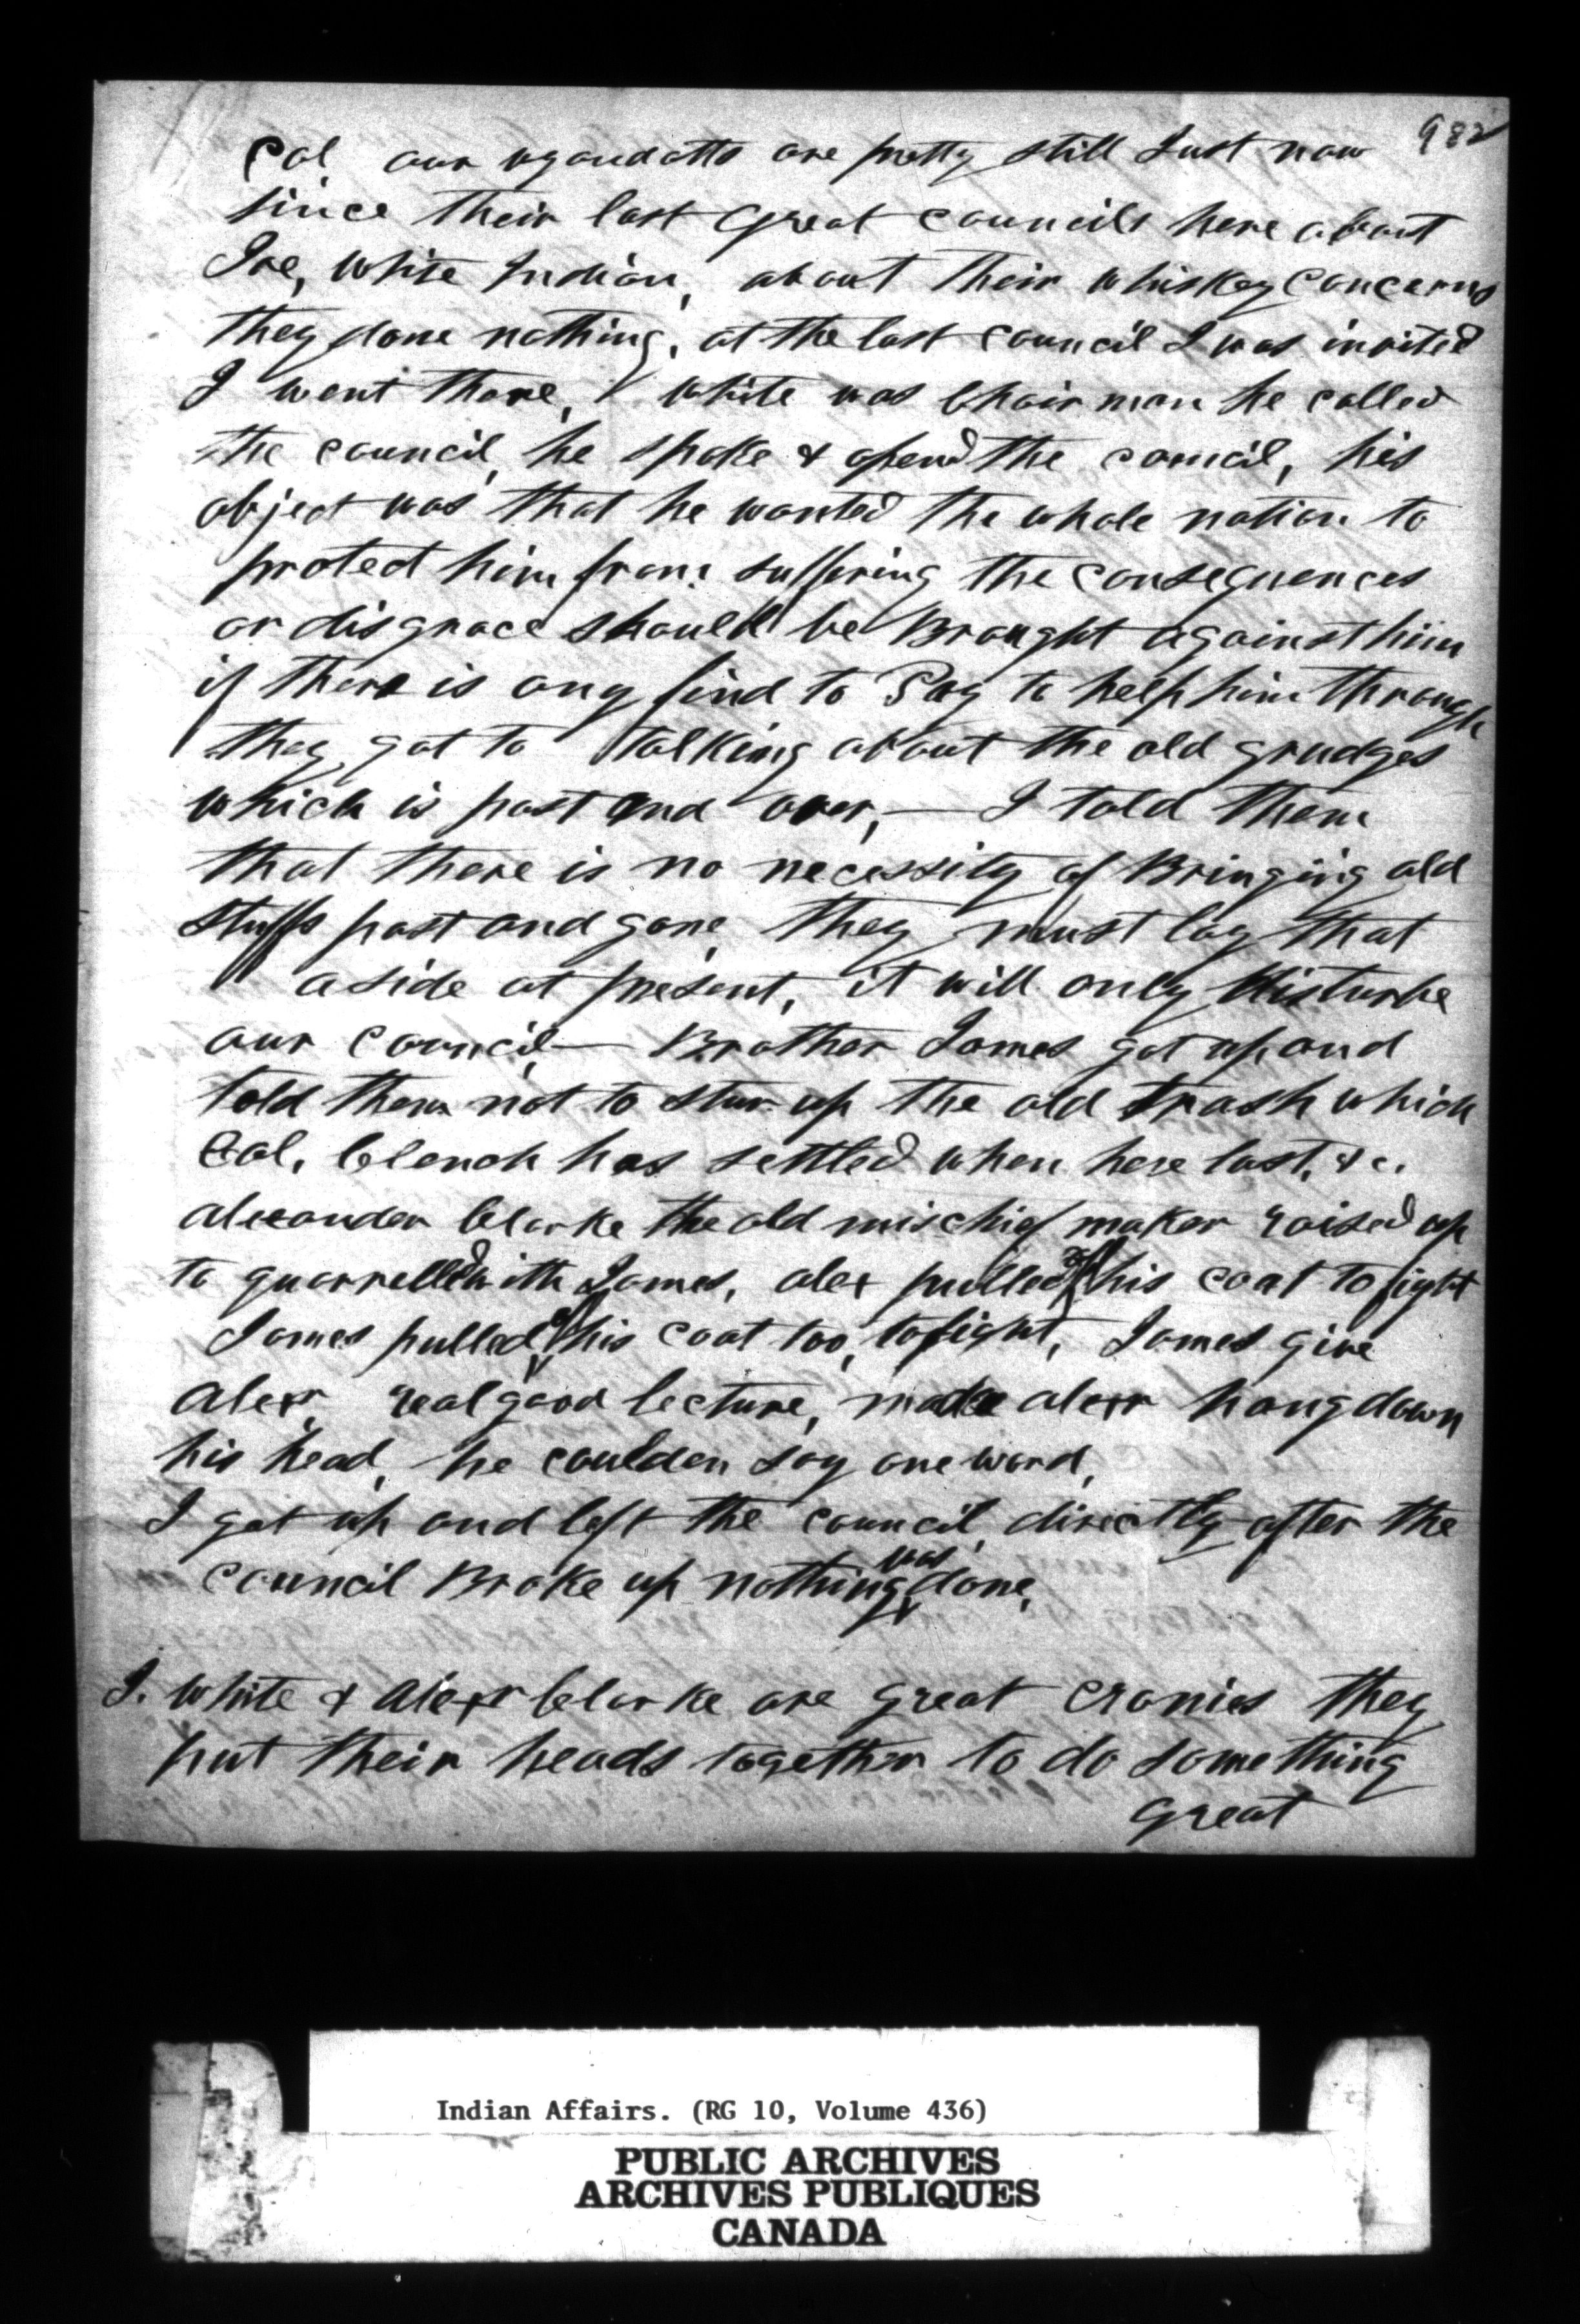 982
Col. our wyandotts are pretty still Just now
since their last Great councils here about
Joe, White Indian, about their whiskey concerns
they done nothing, at the last council I was invited
I went there, White was Chairman he called
the council, he spoke & opend the council, his
object was that he wanted the whole nation to
protect him from suffering the consequences
or disgrace should be Brought against him
if there is any find to Pay to help him through
they got to talking about the old grudges
which is past and over, — I told them
that there is no necessity of Bringing old
stuffs past and gone, they must lay that
aside at present, it will only disturbe
our council — Brother James got up and
told them not to stur up the old trash which
Col. Clench has settled when here last, &c.
alexander Clarke the old mischief maker raised up
to quarrelled with James, alex pulled off his coat to fight
James pulled off his coat too, to fight, James give
alexr real good lecture, made alexr hang down
his head, he coulden say one word,
I got up and left the council, directly after the
council Broke up nothing was done,
J. White & Alexr Clarke are great cronies they
put their heads together to do something
great
Indian Affairs. (RG 10, Volume 436)
PUBLIC ARCHIVES
ARCHIVES PUBLIQUES
CANADA